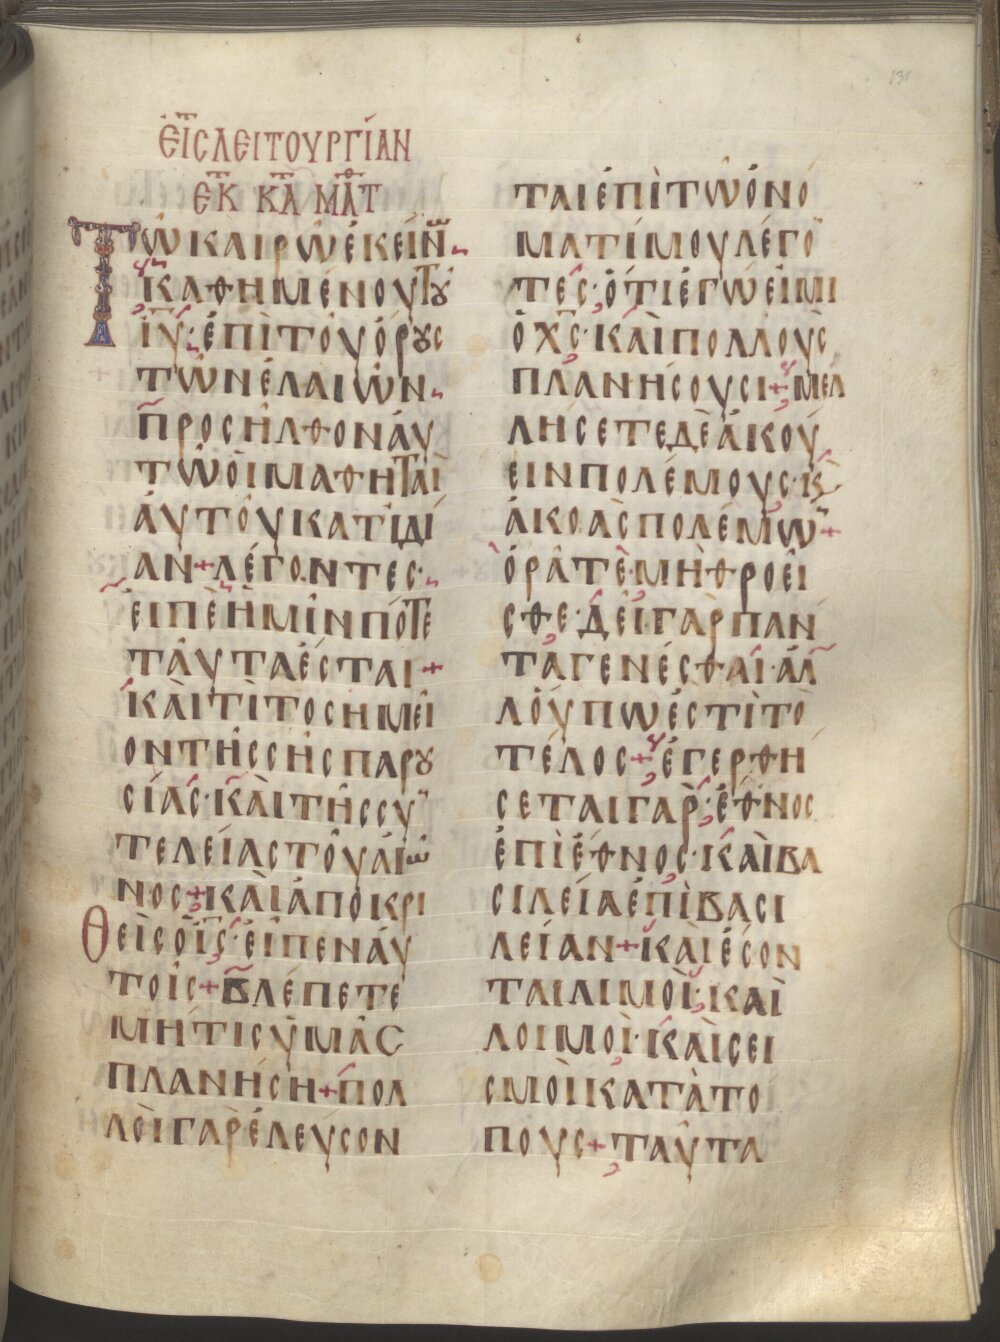 131
ΕἸΣ ΛΕΙΤΟΥΡΓΊΑΝ
ΕΚ ΚΑ ΜΑΤ
ΤΩ ΚΑΙΡΩ ἘΚΕΊΝ
ΚΑΘΗΜΈΝΟΥ ΤȢ
ΙΥ· ἘΠῚ ΤΟΥ ὌΡȢΣ
ΤΩ͂Ν ἘΛΑΙΩ͂Ν
ΠΡΟΣΗΛΘΟΝ ἈΥ
ΤΩ ὉΙ ΜΑΘΗΤΑῚ
ἈΥΤΟΥ͂ ΚΑΤ ἸΔΊ
ΑΝ + ΛΈΓΟΝΤΕΣ·
ἘΙΠῈ ἩΜΙ͂Ν ΠΌΤΕ
ΤΑΥ͂ΤΑ ἘΣΤΑΙ +
ΚΑῚ ΤῚ ΤῸ ΣΗΜΕΙ͂
ΟΝ ΤΗ͂Σ ΣΗ͂Σ ΠΑΡȢ
ΣΊΑΣ· ΚΑῚ ΤΗ͂Σ ΣΥ
ΤΕΛΕΊΑΣ ΤΟΥ͂ ΑἸΩ͂
ΝΟΣ + ΚΑῚ ἈΠΟΚΡΙ
ΘΕῚΣ Ὁ ΙΣ· ἘΙΠΕΝ ἈΥ
ΤΟΙ͂Σ + ΒΛΈΠΕΤΕ
ΜΉ ΤΙΣ ὙΜΑ͂Σ
ΠΛΑΝΉΣΗ + ΠΟΛ
ΛΟῚ ΓᾺΡ ἘΛΕΥΣΟΝ
ΤΑΙ ἘΠῚ ΤΩ ὈΝΌ
ΜΑΤΊ ΜΟΥ ΛΈΓΟ
ΤΕΣ· ὍΤΙ ἘΓΏ ἘΙΜΙ
Ὁ ΧΣ· ΚΑῚ ΠΟΛΛΟῪΣ
ΠΛΑΝΉΣΟΥΣΙ + ΜΕΛ
ΛΉΣΕΤΕ ΔῈ ἈΚΟΎ
ΕΙΝ ΠΟΛΈΜΟΥΣ· Κ
ἈΚΟᾺΣ ΠΟΛΈΜΩ +
ὉΡΑ͂ΤΕ· ΜΗ ΘΡΟΕΙ͂
ΣΘΕ· ΔΕΙ͂ ΓᾺΡ ΠΑΝ
ΤΑ ΓΕΝΈΣΘΑΙ· ἈΛ
Λ ὈΥΠΩ ἘΣΤῚ ΤῸ
ΤΈΛΟΣ + ἘΓΕΡΘΉ
ΣΕΤΑΙ ΓᾺΡ· ἜΘΝΟΣ
ἘΠῚ ἜΘΝΟΣ· ΚΑῚ ΒΑ
ΣΙΛΕΊΑ ἘΠῚ ΒΑΣΙ
ΛΕΊΑΝ + ΚΑῚ ἘΣΟΝ
ΤΑΙ ΛΙΜΟῚ· ΚΑῚ
ΛΟΙΜΟῚ· ΚΑῚ ΣΕΙ
ΣΜΟῚ ΚΑΤᾺ ΤΌ
ΠΟΥΣ + ΤΑΥ͂ΤΑ